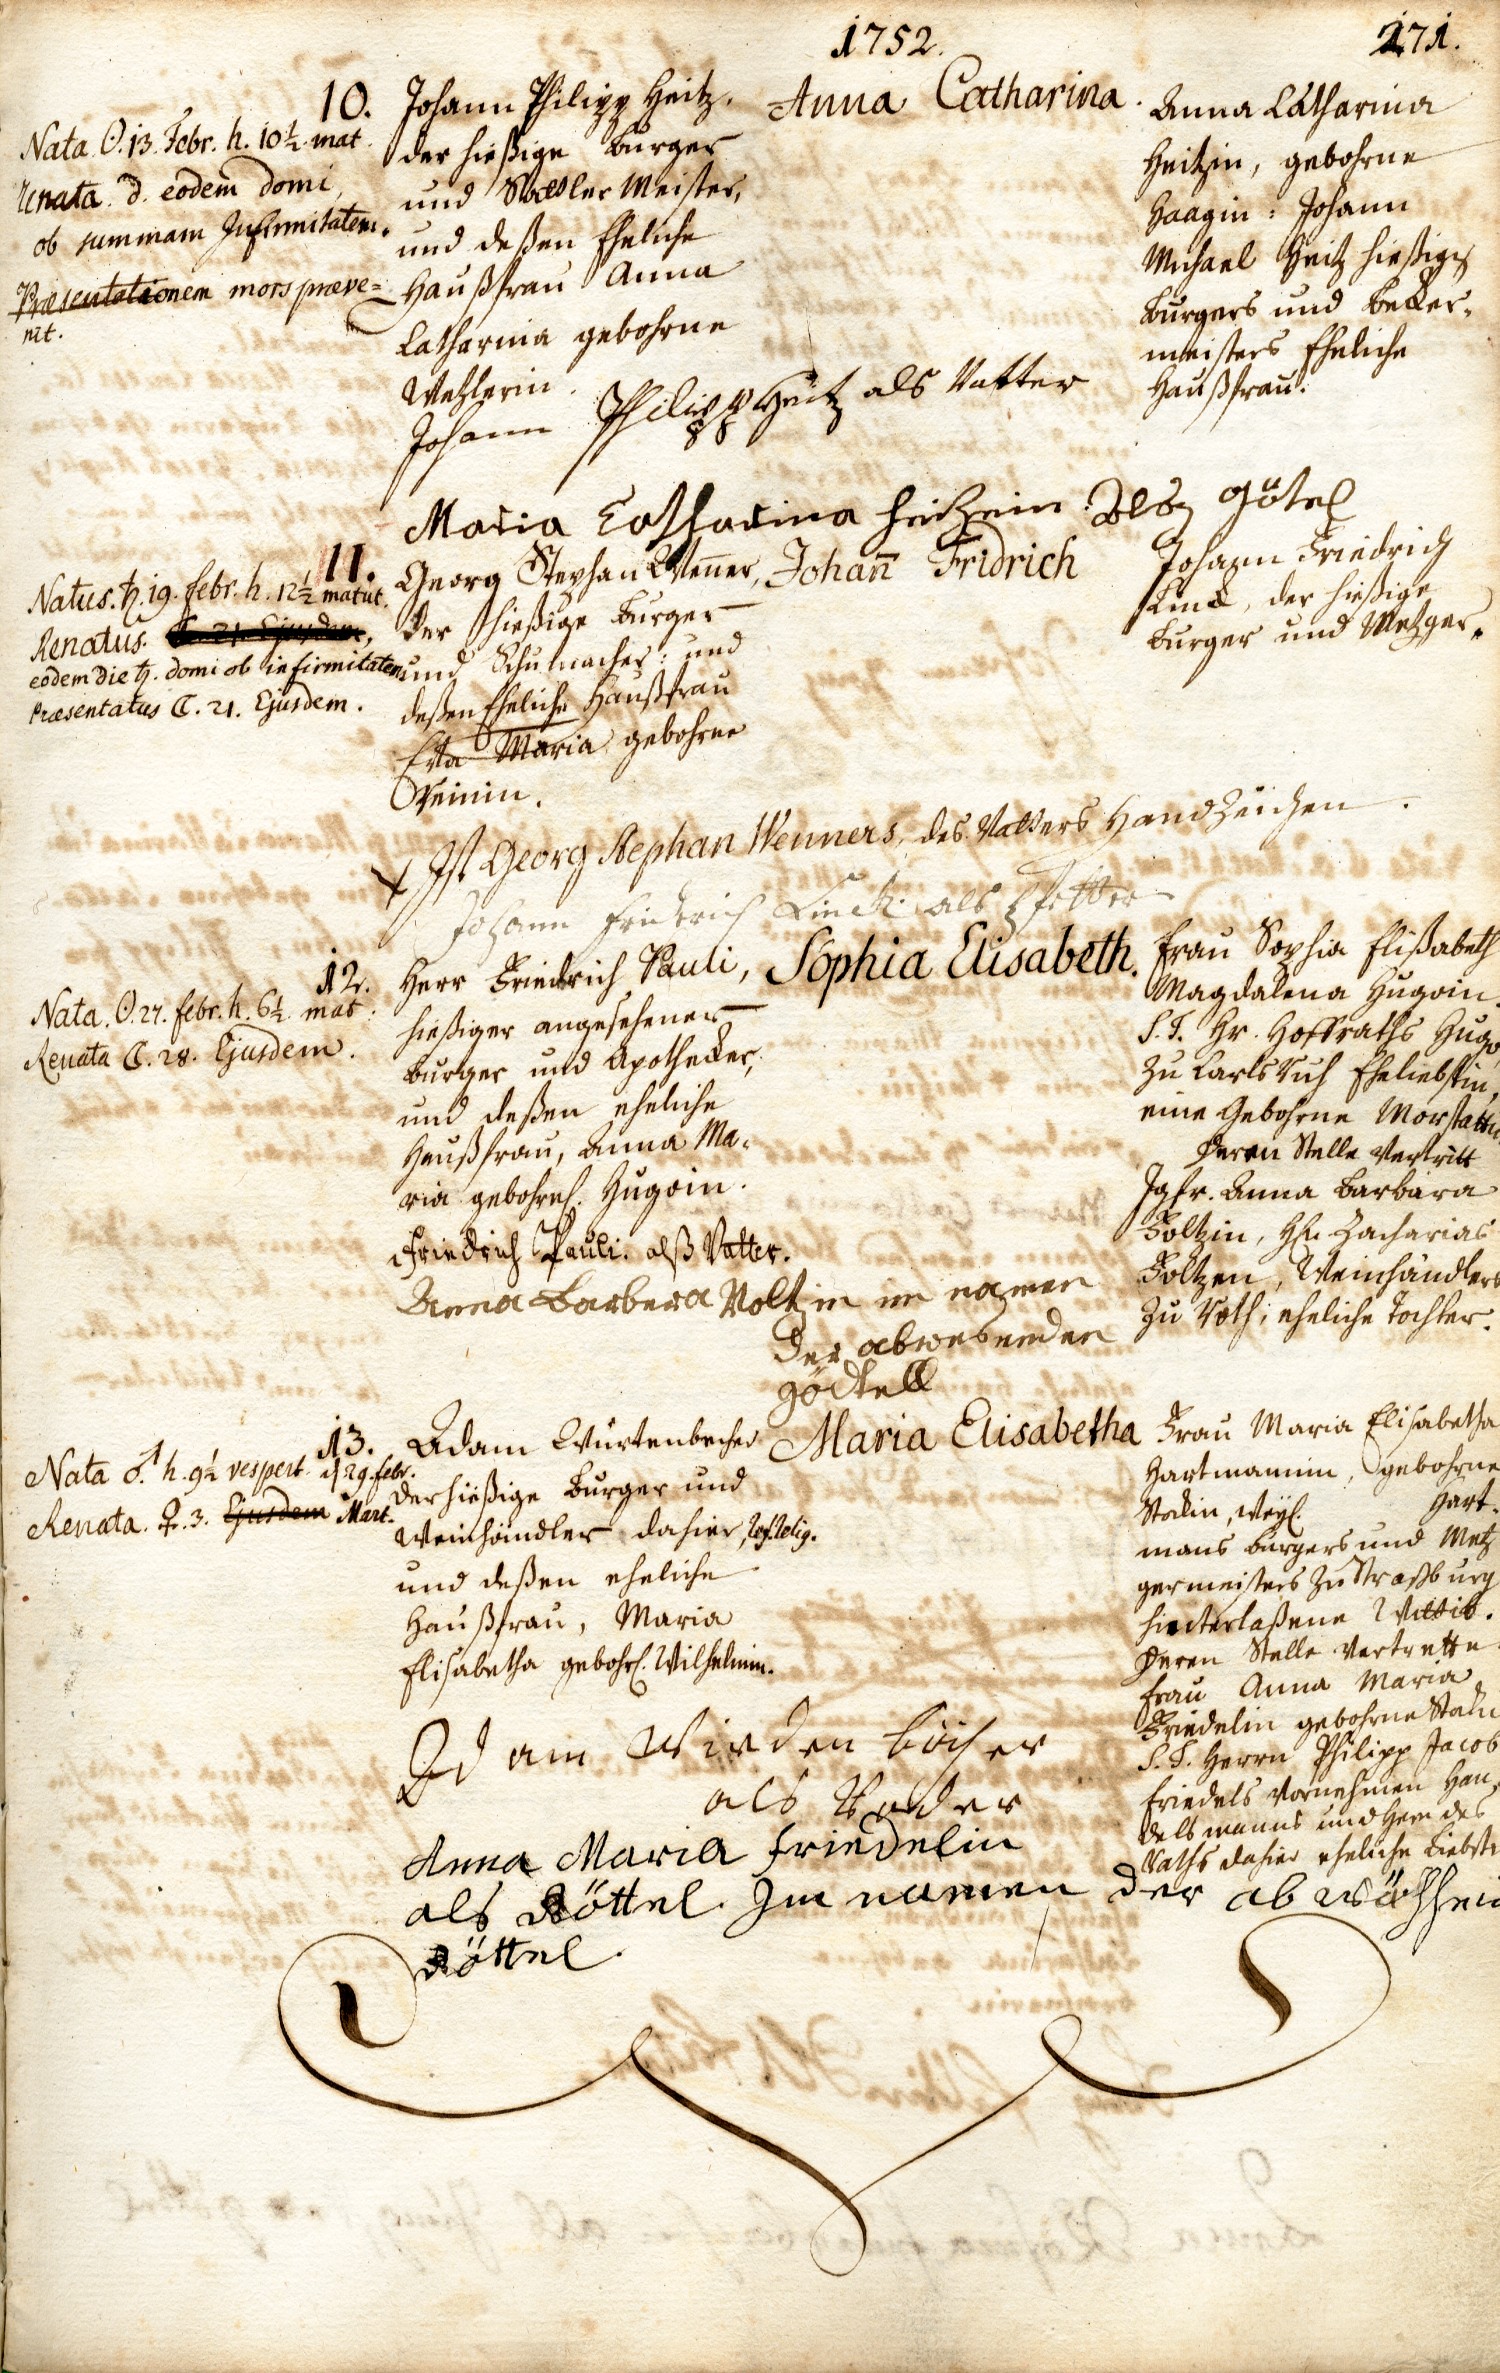 1752.
171.
10.
Nata ☉. 13. Febr. h. 10½. mat.
Renata. d. eodem domi,
ob summam Infirmitatem.
Præsentationem mors præve=
nit.
Johann Philipp Heitz,
der hießige Burger
und Meister,
und deßen Eheliche
Haußfrau Anna
Catharina gebohrne
Wetzlerin.
Anna Catharina.
Anna Catharina
Heitzin, gebohrne
Haagin: Johann
Michael Heitz hießigen
Burgers und Becker-
meisters Eheliche
Haußfrau.
Johann Philipp Heitz als Vatter
Maria Catharina Heitzin als götel
11.
Natus. ♄. 19. febr. h. 12½ matut.
Renatus.
eodem die ♄. domi ob infirmitatem
Præsentatus ☾. 21. Ejusdem.
Georg Stephan Wener,
der hießige Burger
und Schumacher: und
deßen Eheliche Haußfrau
Eva Maria gebohrne
Johann Fridrich
Johann Friedrich
Linck, der hießige
Burger und Metzger.
x Ist Georg Stephan Wenners, des Vatters Handzeichen.
Johann Friederich Linck als Pfetter
12.
Nata. ☉. 27. febr. h. 6½ mat:
Renata ☾. 28. Ejusdem.
Herr Friedrich Pauli,
hießiger angesehener
Burger und Apothecker,
und deßen eheliche
Haußfrau, Anna Ma-
ria gebohrne. Hugoin.
Sophia Elisabeth.
Frau Sophia Elißabeth
Magdalena Hugoin.
S. T. Hr. Hoffraths Hugo
zu Carlsruh Eheliebstin,
eine Gebohrne
deren Stelle vertritt
Jgfr. Anna Barbara
Foltzin, Hr. Zacharias
Foltzen, Weinhändlers
zu Roth: eheliche Tochter.
Friedrich Pauli. alß Vatter.
Anna Barbera Voltzin im namen
der abwesenden
gödtell
13.
Nata ♂. h. 9½ vespert. d 29. febr.
Renata. ♀. 3. Ejusdem Mart.
Adam Würtenbecher
der hießige Burger und
Weinhändler dahier, ref. relig.
und deßen eheliche
Haußfrau, Maria
Elisabetha gebohrne Wilhelmin.
Maria Elisabetha
Frau Maria Elisabetha
Hartmannin, gebohrne
weyl. Hart-
manns Burgers und Metz
germeisters zu Straßburg
hinterlaßene Wittib.
Deren Stelle vertrette
Frau Anna Maria
Friedelin gebohrne
S. T. Herrn Philipp Jacob
Friedels vornehmen Han-
delsmanns und Herrn des
Raths dahier eheliche Liebste
Adam
als Vader
Anna Maria Friedelin
als Göttel Im namen der
Göttel.